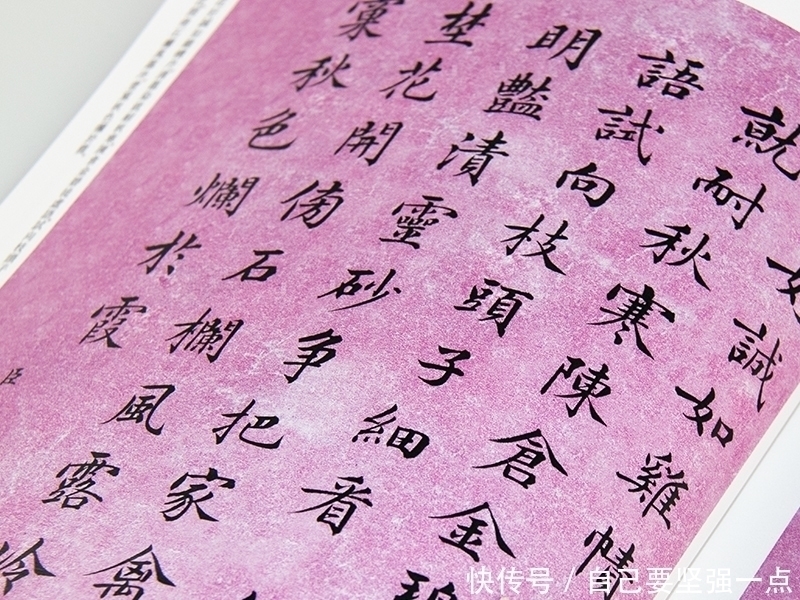 如誠如雞情
就耐秋寒陳倉金碧
語試向枝頭子細看
明艷漬靈砂争把家禽
埜花開傍石欄風露冷
秋色爛於霞
臣
快传号 / 自己要坚强一点